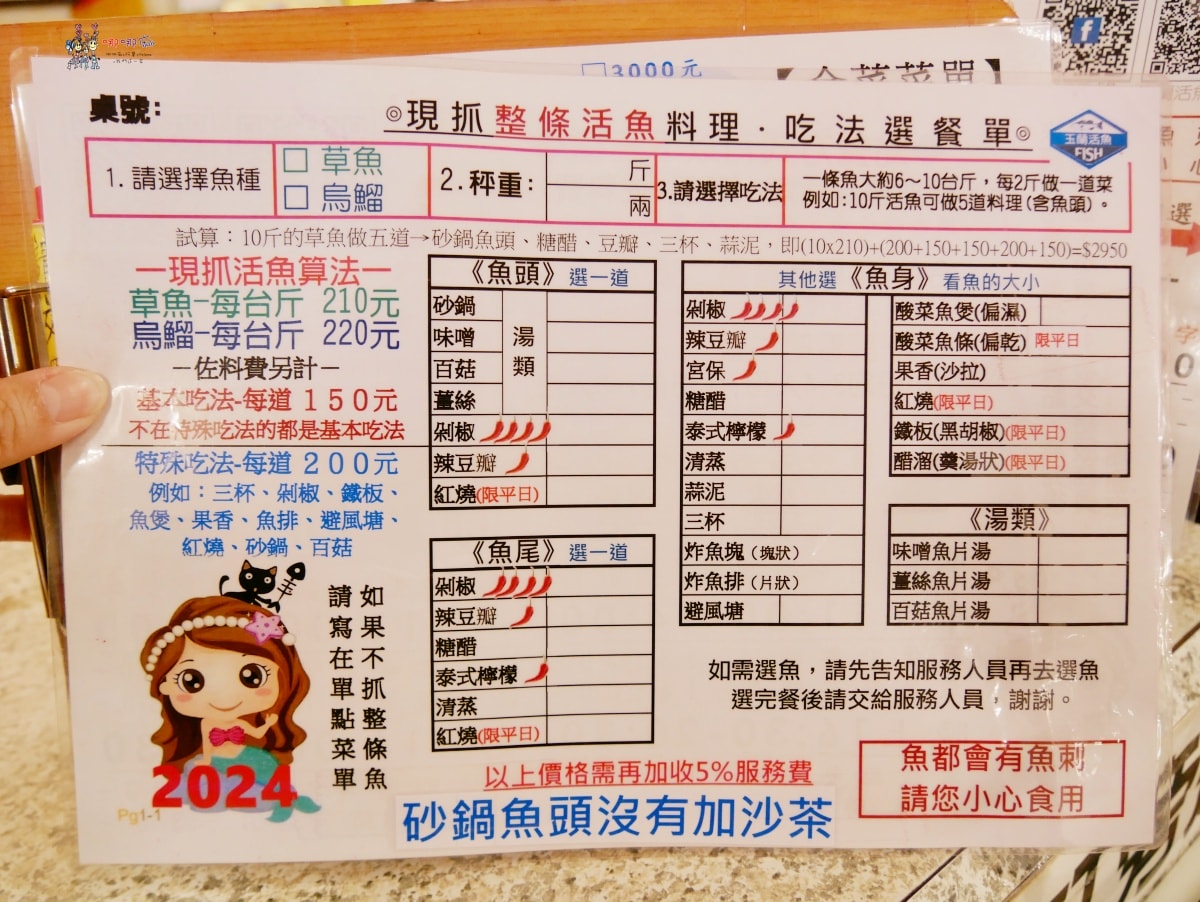 3000元
【合菜菜單】
桌號:
◎現抓整條活魚料理·吃法選餐單◎
玉蘭活魚
FISH
1.請選擇魚種
□ 草魚
□ 烏鰡
2.秤重:
斤
兩
3.請選擇吃法
一條魚大約6~10台斤，每2斤做一道菜
例如:10斤活魚可做5道料理(含魚頭)。
試算：10斤的草魚做五道→砂鍋魚頭、糖醋、豆瓣、三杯、蒜泥，即(10x210)+(200+150+150+200+150)=$2950
—現抓活魚算法—
草魚-每台斤 210元
烏鰡-每台斤 220元
—佐料費另計—
基本吃法-每道 150元
不在特殊吃法的都是基本吃法
特殊吃法-每道 200元
例如：三杯、剁椒、鐵板、
魚煲、果香、魚排、避風塘、
紅燒、砂鍋、百菇
如果不抓整條魚
請寫在單點菜單
2024
Pg1-1
《魚頭》選一道
砂鍋
味噌
百菇
薑絲
湯類
剁椒
辣豆瓣
紅燒(限平日)
《魚尾》選一道
剁椒
辣豆瓣
糖醋
泰式檸檬
清蒸
紅燒(限平日)
其他選《魚身》看魚的大小
剁椒
辣豆瓣
宮保
糖醋
泰式檸檬
清蒸
蒜泥
三杯
炸魚塊(塊狀)
炸魚排(片狀)
避風塘
酸菜魚煲(偏濕)
酸菜魚條(偏乾) 限平日
果香(沙拉)
紅燒(限平日)
鐵板(黑胡椒)(限平日)
醋溜(羹湯狀)(限平日)
《湯類》
味噌魚片湯
薑絲魚片湯
百菇魚片湯
如需選魚，請先告知服務人員再去選魚
選完餐後請交給服務人員，謝謝。
以上價格需再加收5%服務費
砂鍋魚頭沒有加沙茶
魚都會有魚刺
請您小心食用